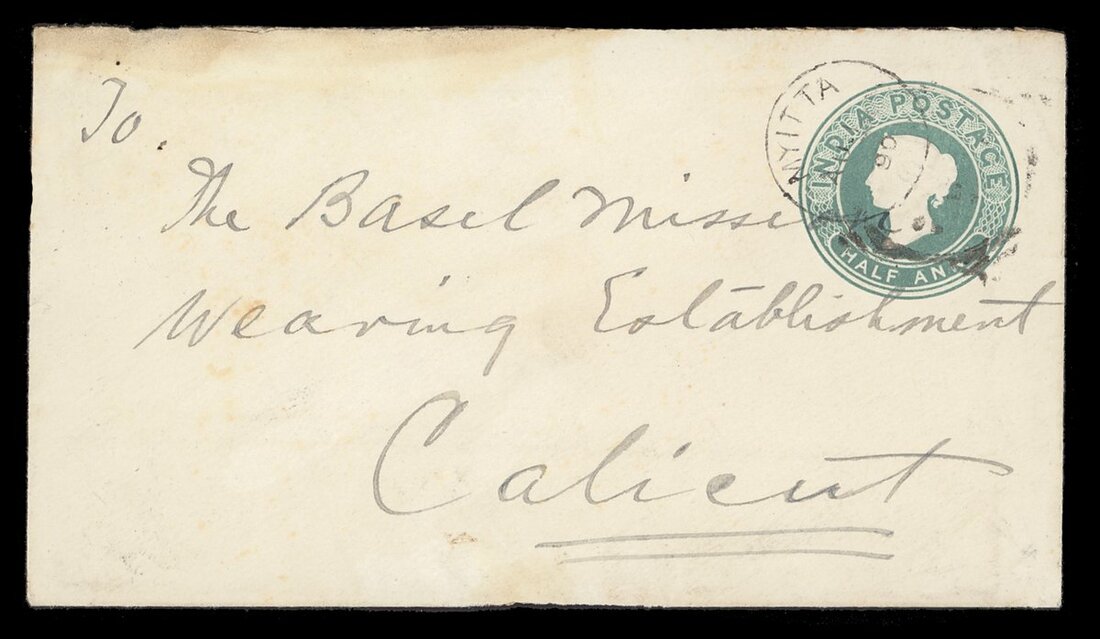 To.
The Basel Missi
Weaving Establishment
Calicut
INDIA POSTAGE
HALF ANN
NYITTA
90